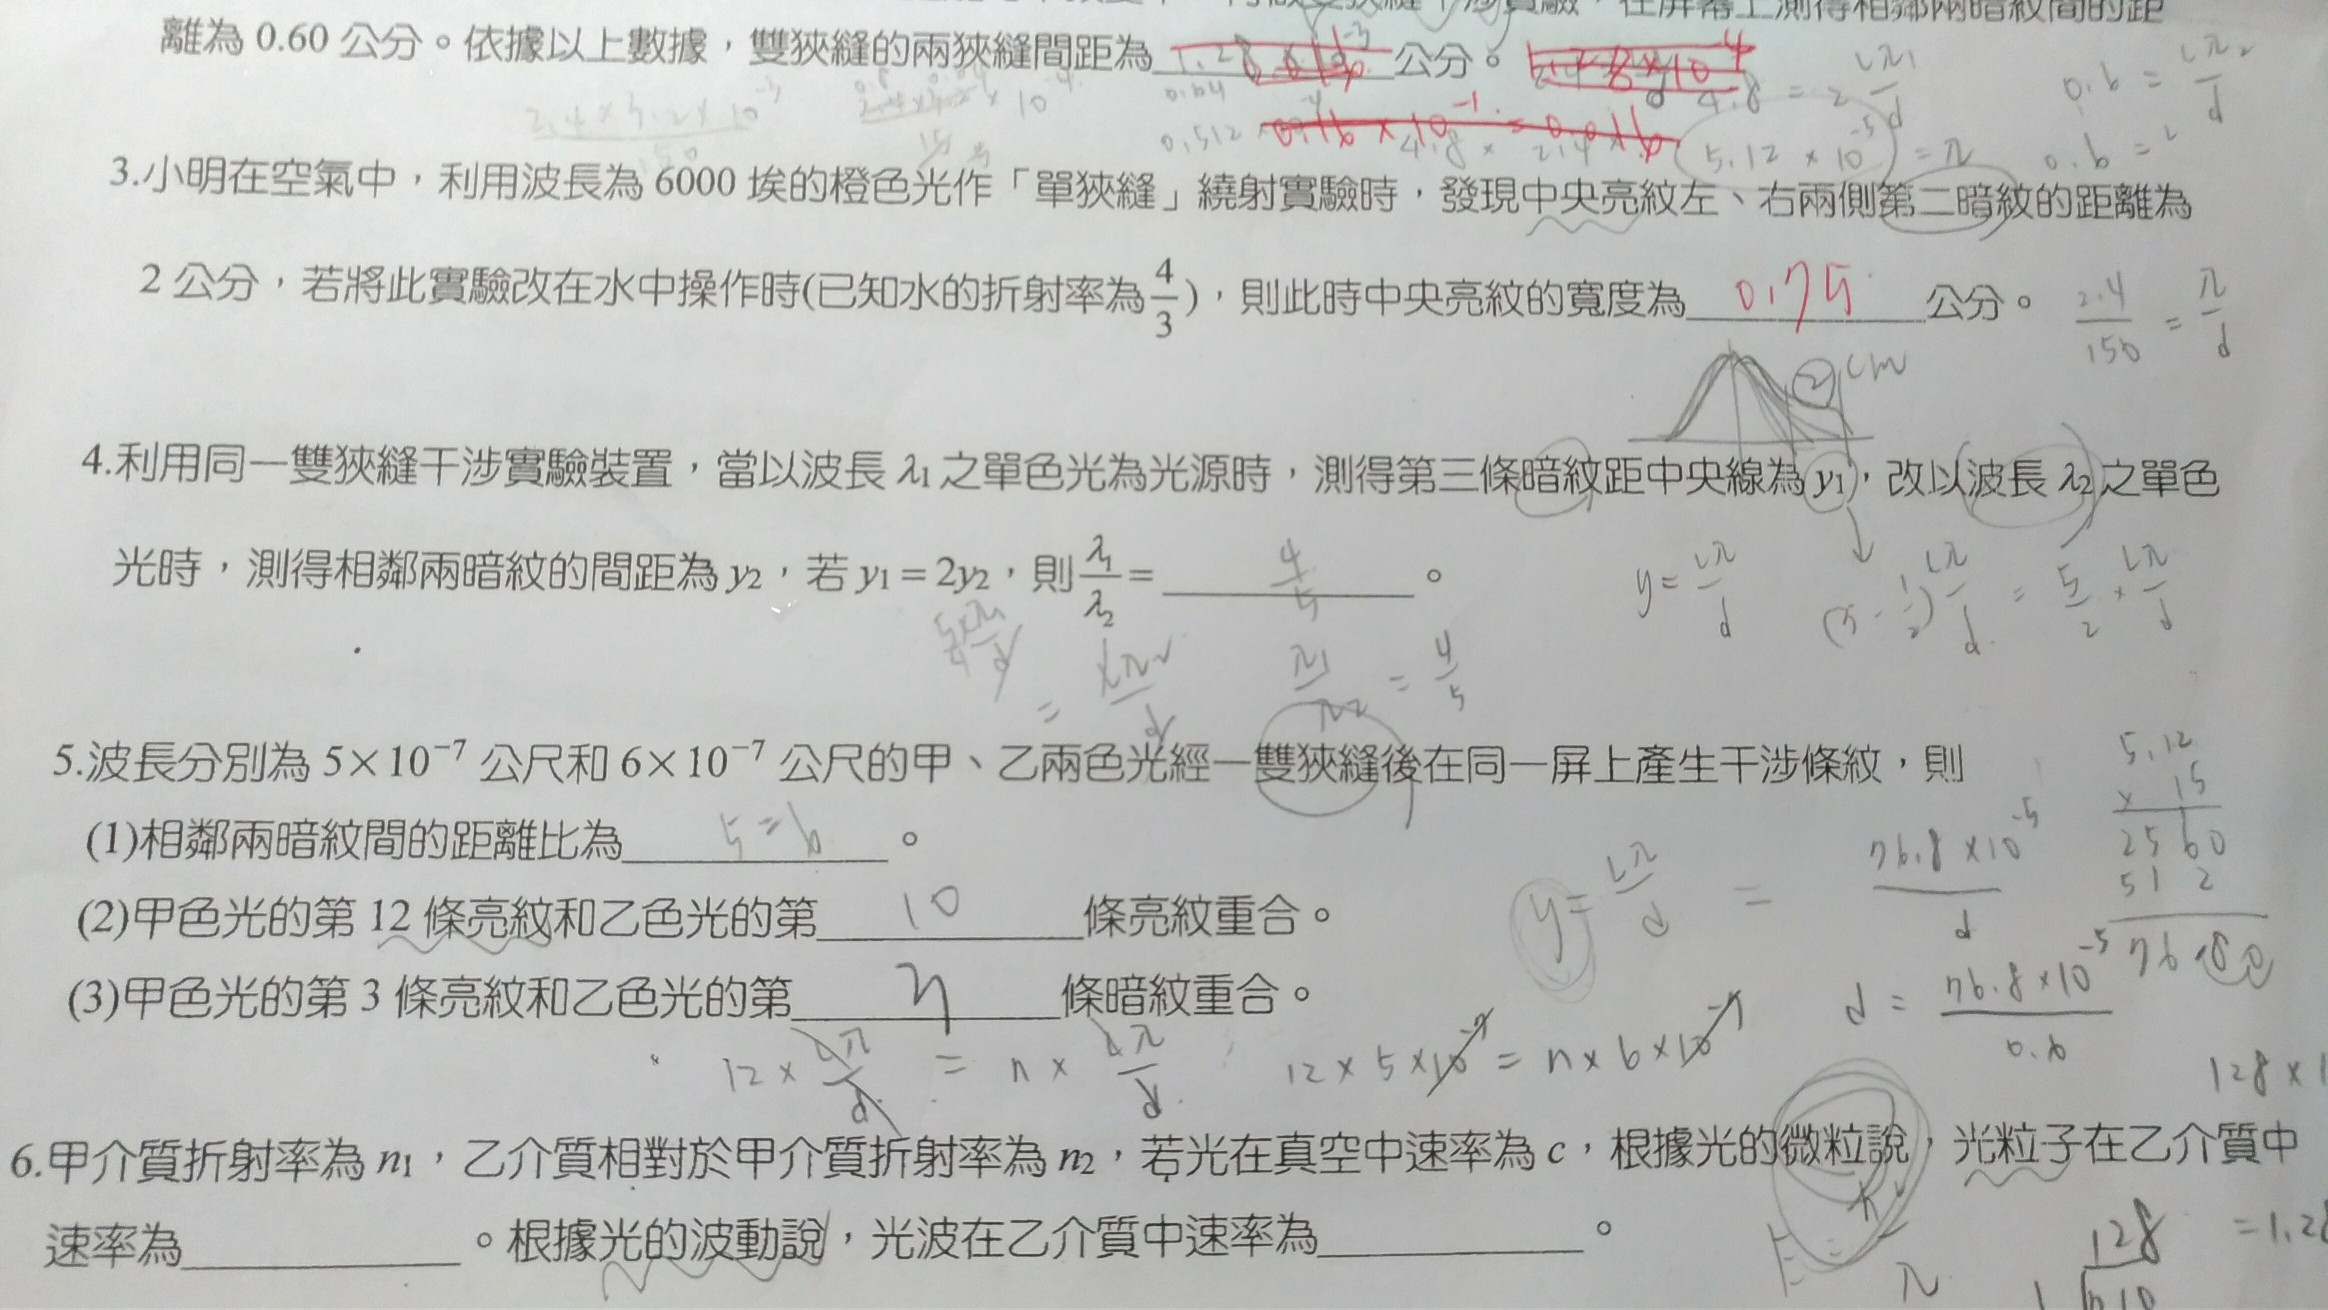 離為 0.60 公分。依據以上數據，雙狹縫的兩狹縫間距為 公分。
4.8 = 2 Lλ1/d
0.6 = Lλ2/d
2.4×3.2×10^-3
5.12 × 10^-5 = λ
3.小明在空氣中，利用波長為 6000 埃的橙色光作「單狹縫」繞射實驗時，發現中央亮紋左、右兩側第二暗紋的距離為
2 公分，若將此實驗改在水中操作時(已知水的折射率為4/3)，則此時中央亮紋的寬度為 0.75 公分。
2.4/150 = λ/d
2 cm
4.利用同一雙狹縫干涉實驗裝置，當以波長 λ1 之單色光為光源時，測得第三條暗紋距中央線為 y1，改以波長 λ2 之單色
光時，測得相鄰兩暗紋的間距為 y2，若 y1 = 2y2，則 λ1/λ2 = 4/5 。
y = Lλ/d
(3 - 1/2) Lλ/d = 5/2 × Lλ/d
λ1/λ2 = 4/5
5.波長分別為 5×10⁻⁷ 公尺和 6×10⁻⁷ 公尺的甲、乙兩色光經一雙狹縫後在同一屏上產生干涉條紋，則
5.12
× 15
2560
512
7680
(1)相鄰兩暗紋間的距離比為 5=6 。
(2)甲色光的第 12 條亮紋和乙色光的第 10 條亮紋重合。
y = Lλ/d = 76.8×10^-5/d
(3)甲色光的第 3 條亮紋和乙色光的第 條暗紋重合。
d = 76.8×10^-5/0.6
12 × Lλ/d = n × Lλ/d
12 × 5 × 10^-7 = n × 6 × 10^-7
128 × 1
6.甲介質折射率為 n1，乙介質相對於甲介質折射率為 n2，若光在真空中速率為 c，根據光的微粒說，光粒子在乙介質中
速率為 。根據光的波動說，光波在乙介質中速率為 。
128
= 1.28